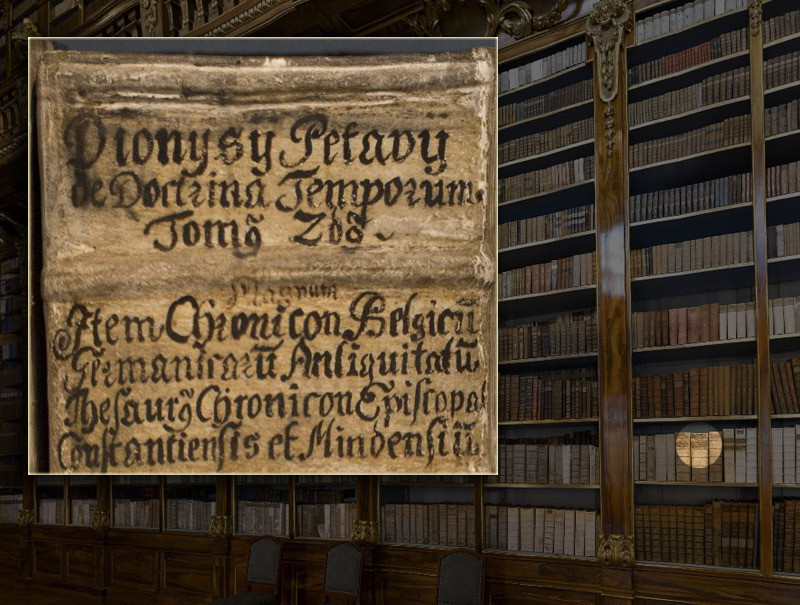 Dionysÿ Petavÿ
de Doctrina Temporum.
Tomq̃ 2dq̃
Magnum
Item Chronicon Belgicū
Germanicarū Antiquitatū
Thesaurq̃ Chronicon Episcopal
Constantiensis et Mindensiū